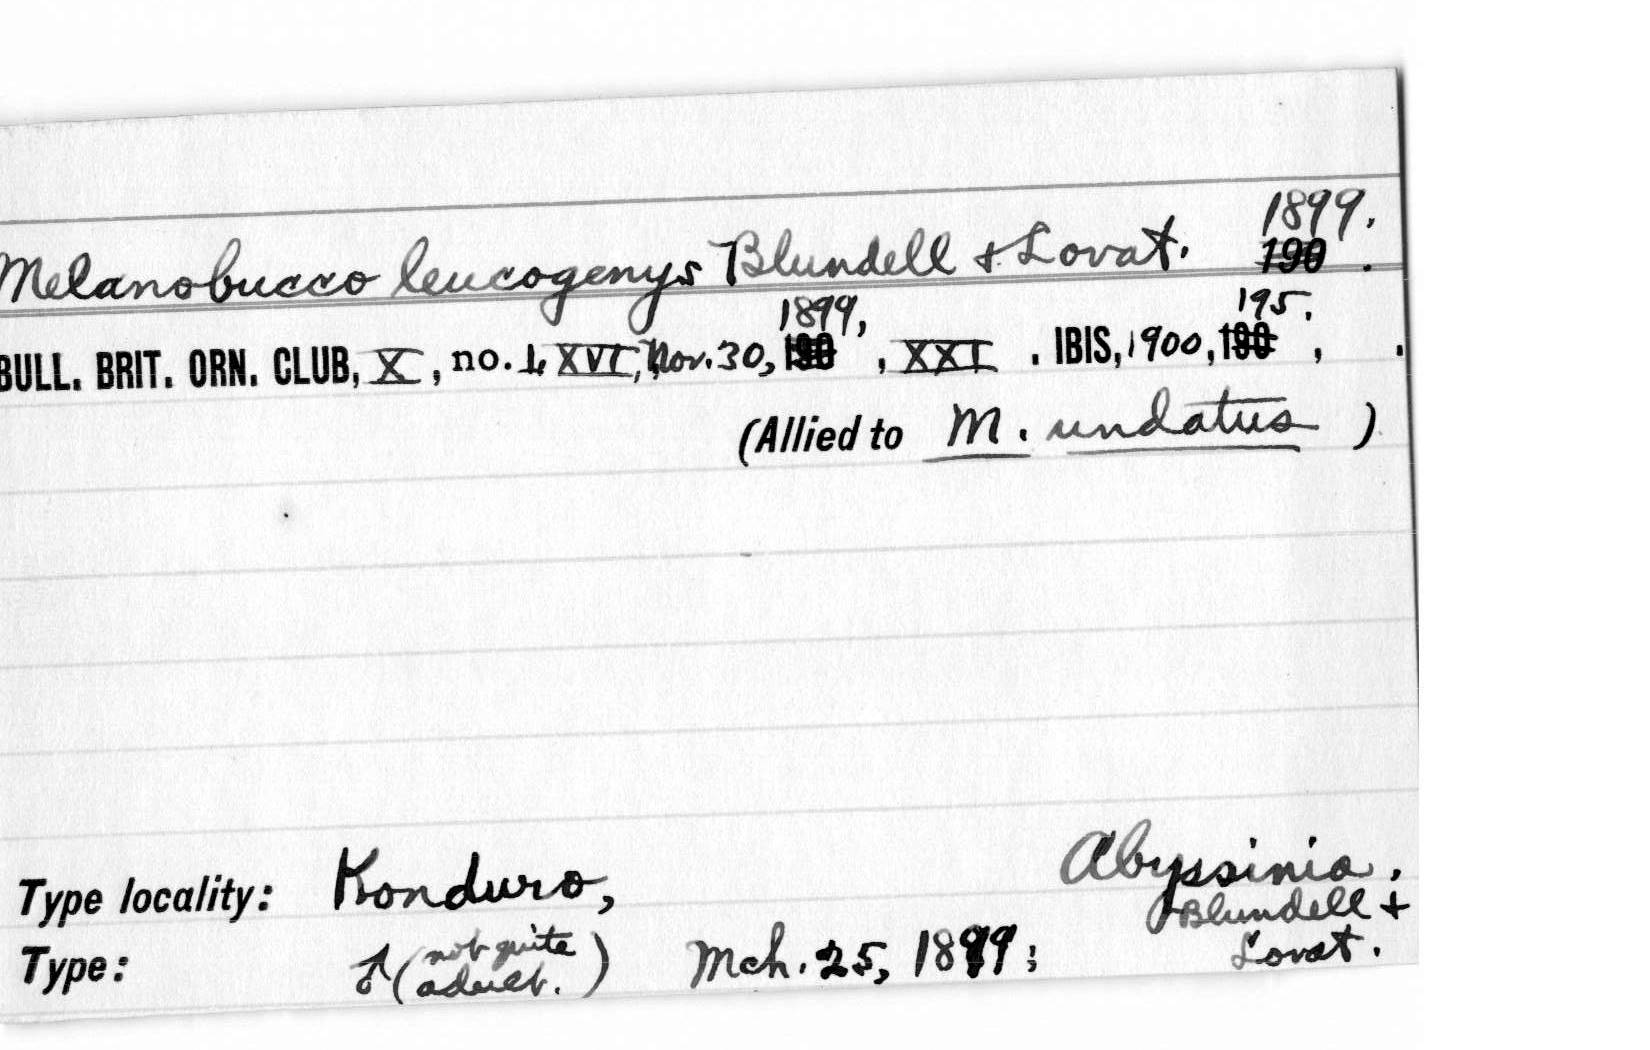 1899.
Melanobucco leucogenys Blundell & Lovat. 190 .
1899, 195.
BULL. BRIT. ORN. CLUB, X, no. LXVI, Nov. 30, 190 , XXI . IBIS, 1900, 190 , .
(Allied to M. undatus )
Type locality: Konduro, Abyssinia.
Blundell &
Type: ♂ (not quite adult.) Mch. 25, 1899; Lovat.